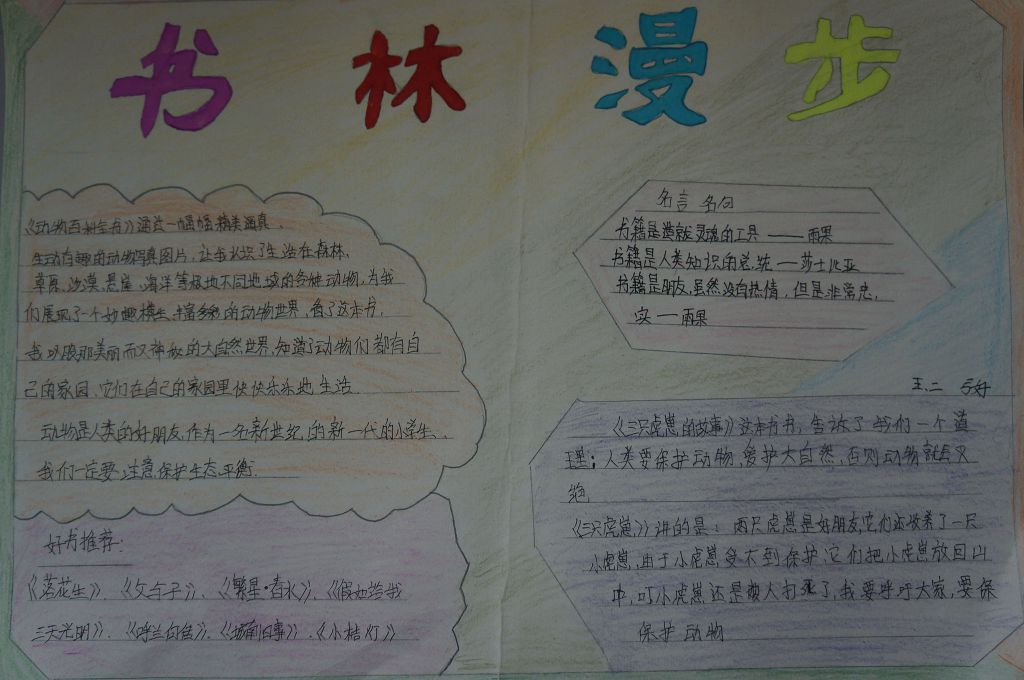 书林漫步
《动物百科全书》通过一幅幅精美逼真
生动有趣的动物写真图片，让我认识了生活在森林、
草原、沙漠、悬崖、海洋等极地不同地域的各种动物，为我
们展现了一个妙趣横生、丰富多彩的动物世界，看了这本书，
我以及那美丽而又神秘的大自然世界，知道了动物们都有自
己的家园，它们在自己的家园里快快乐乐地生活
动物是人类的好朋友，作为一名新世纪的新一代的小学生，
我们一定要注意保护生态平衡.
好书推荐:
《落花生》、《父与子》、《繁星·春水》、《假如给我
三天光明》、《呼兰河传》、《城南旧事》、《小桔灯》
名言 名句
书籍是造就灵魂的工具 ——雨果
书籍是人类知识的总统 —莎士比亚
书籍是朋友，虽然没有热情，但是非常忠，
实—雨果
王二
《三只虎崽的故事》这本书书，告诉了我们一个道
理；人类要保护动物，爱护大自然，否则动物就会灭
绝
《三只虎崽》讲的是：两只虎崽是好朋友，它们还收养了一只
小虎崽，由于小虎崽受不到保护，它们把小虎崽放回山
中，可小虎崽还是被人打死了，我要呼吁大家，要保
保护动物